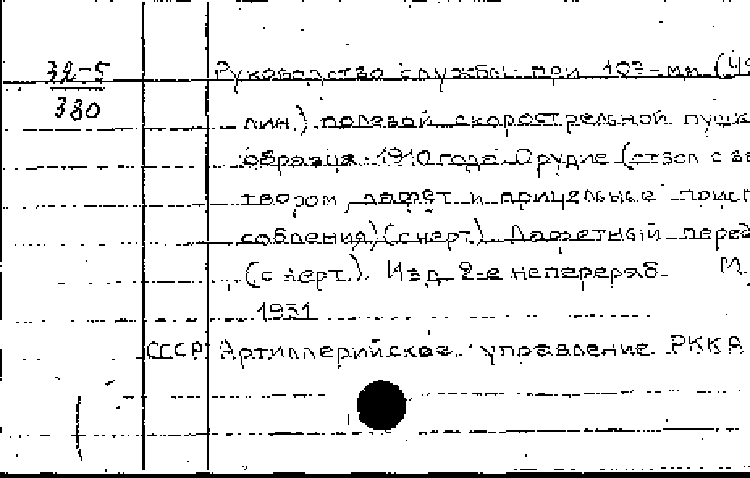 32-5
380
Руководство службы при 107-мм (42
лин.) полевой скорострельной пушк
образца 1910 года. Орудие (ствол с за
твором, лафет и прицельные присп
собления) (с черт.). Лафетный перед
(с черт.). Изд. 2-е непереряб. М.,
1931
СССР Артиллерийское управление РККА